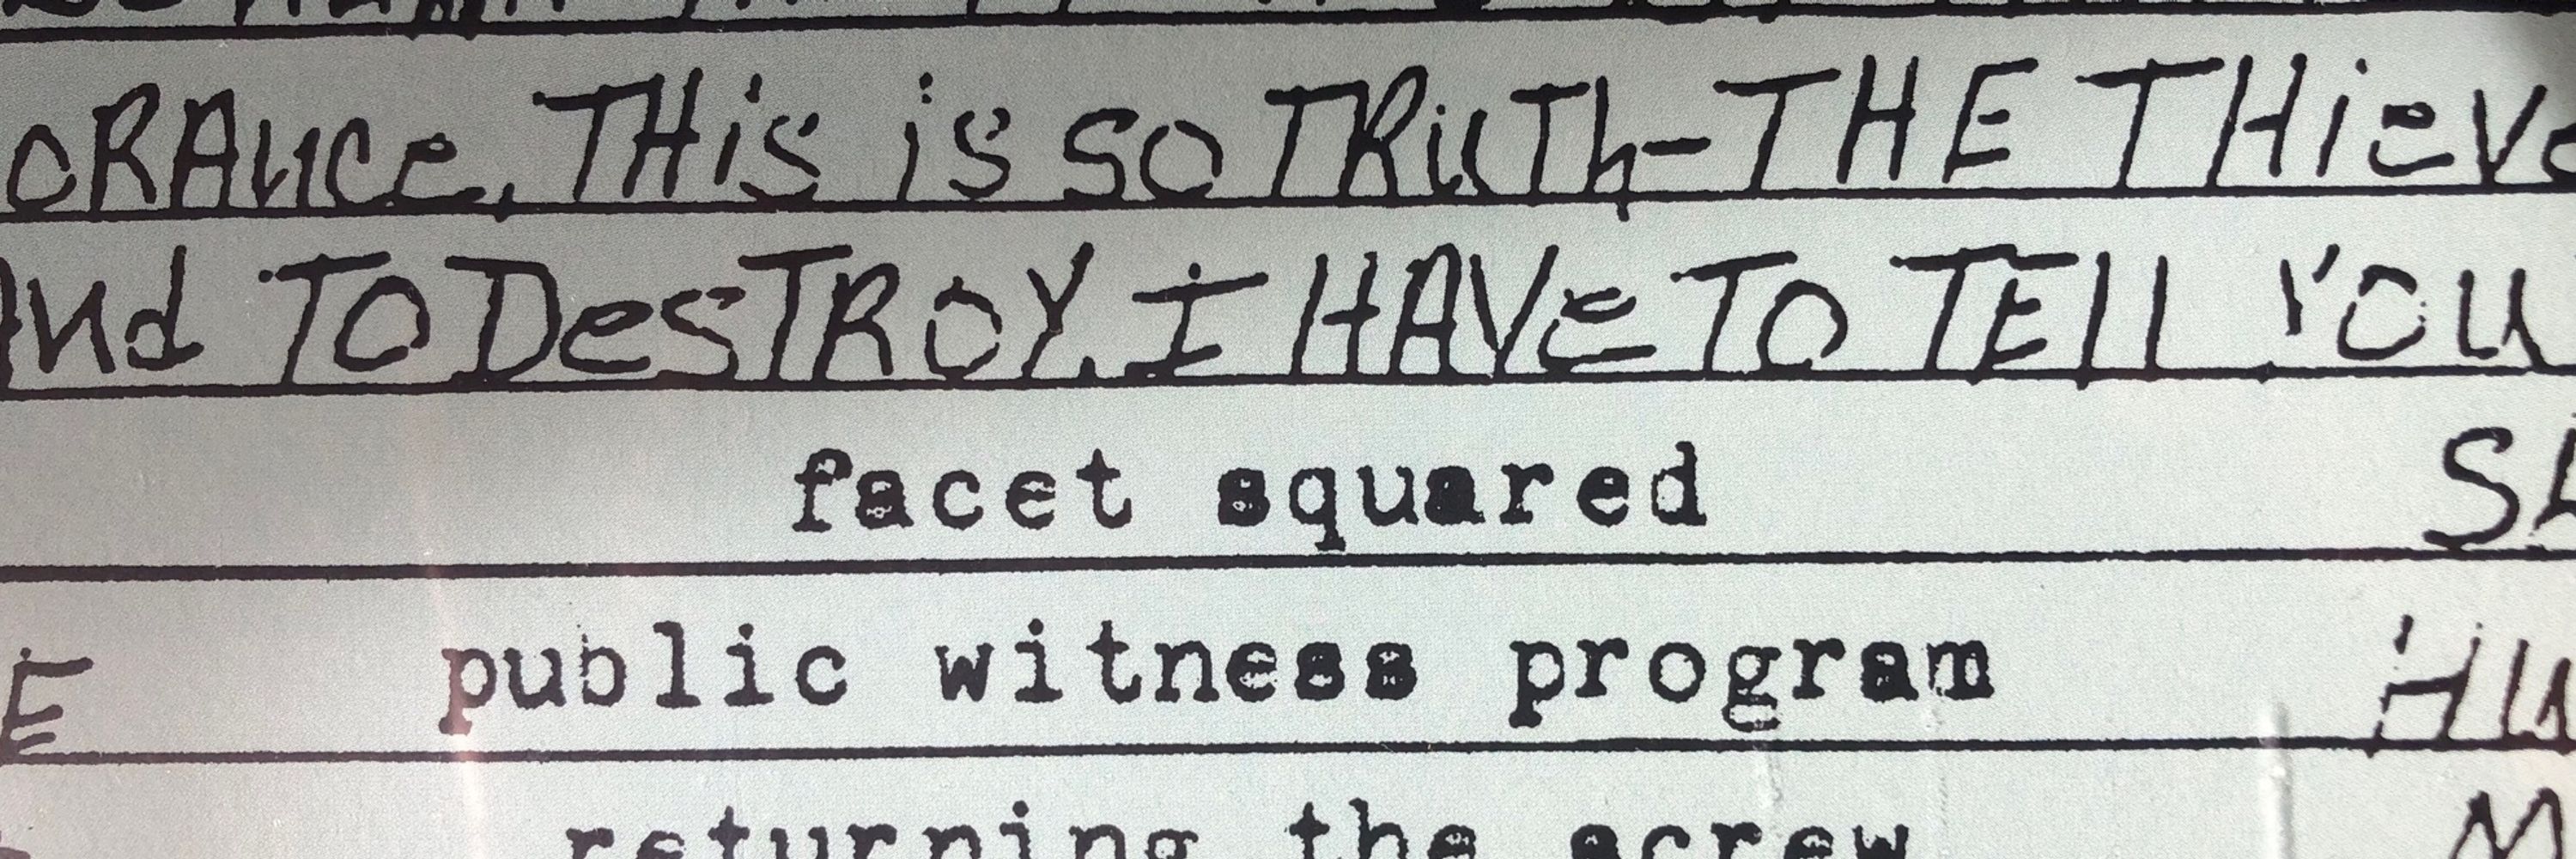 ORANce. THis is so TRuTh-THE THieve
And TO DesTROY. I HAVe TO TEll YOU
facet squared
public witness program
returning the screw